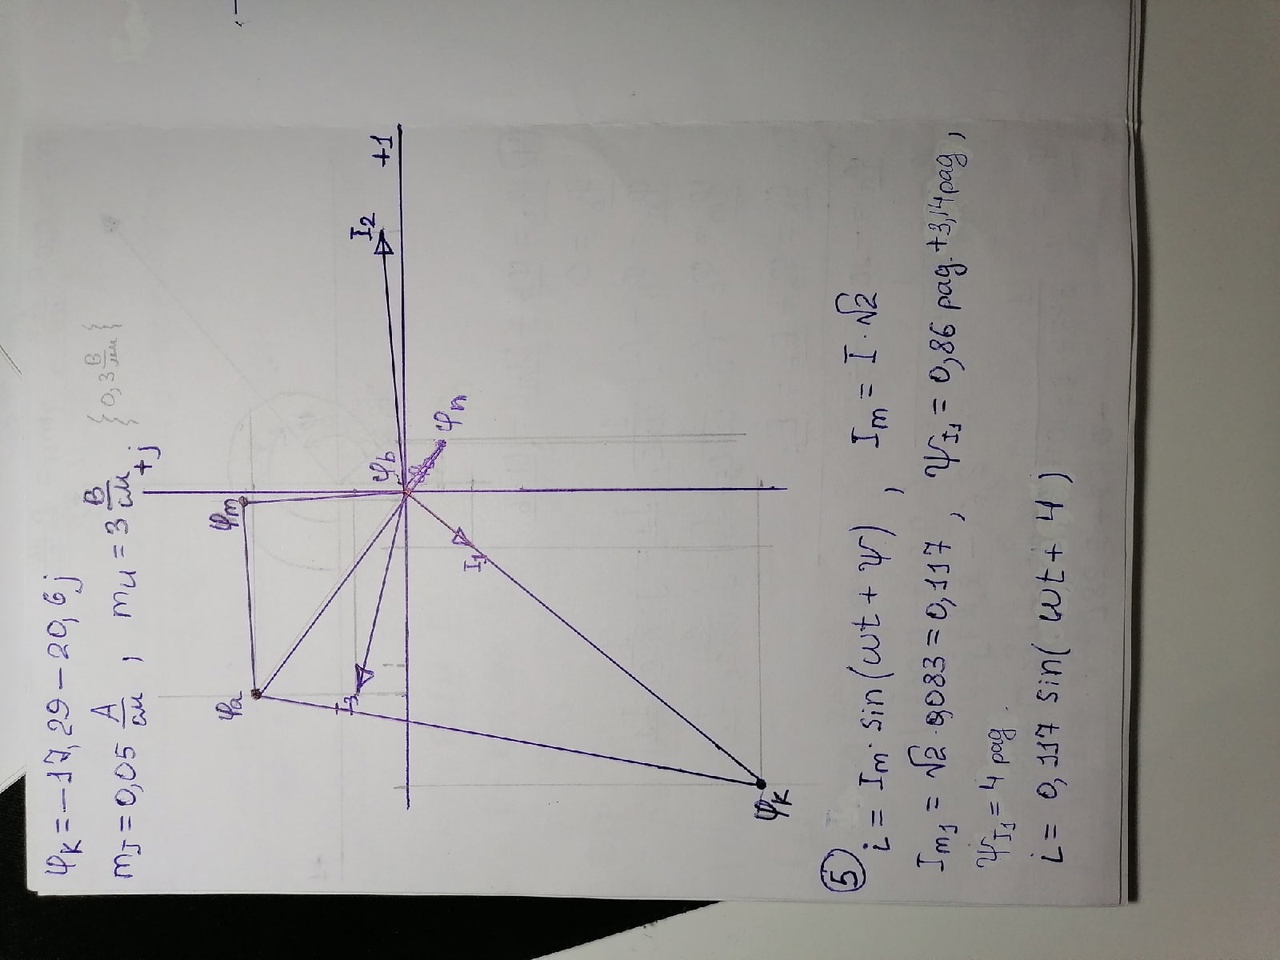 φk = −17,29 − 20,6j
mJ = 0,05 А/см , mU = 3 В/см {0,3 В/мм}
+j
φa φm
I3
I2
φb +1
I1 φn
φk
5
i = Im · sin(ωt + ψ) , Im = I · √2
Im1 = √2 · 0,083 = 0,117 , ψI1 = 0,86 рад. + 3,14 рад ,
ψI1 = 4 рад .
i = 0,117 sin( ωt + 4 )